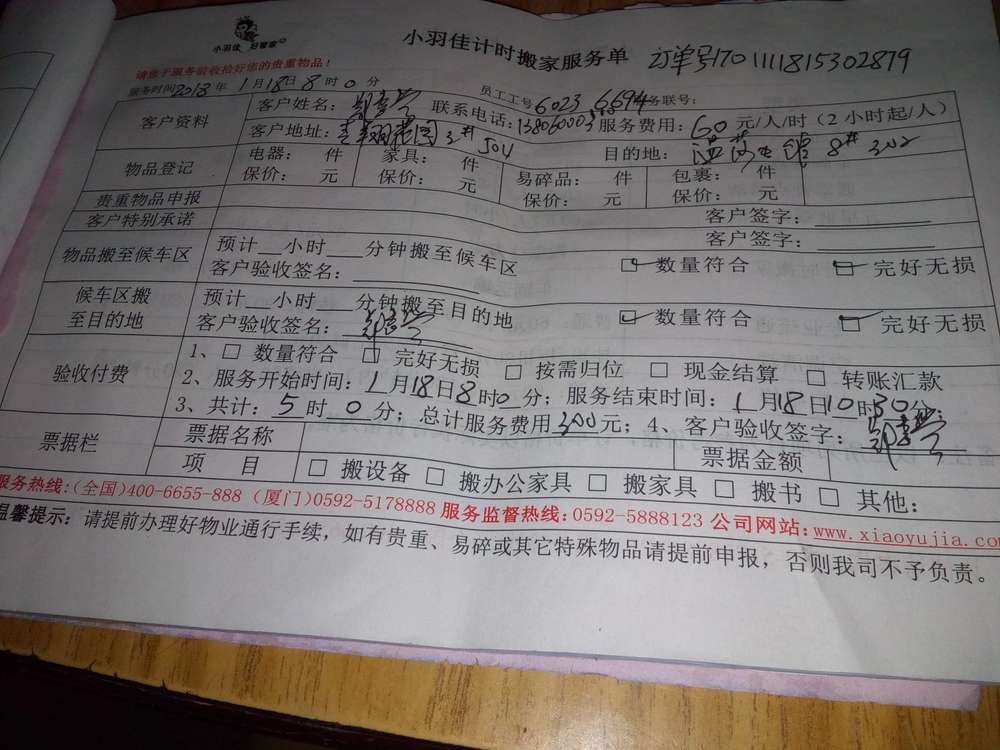 小羽佳 好管家
小羽佳计时搬家服务单 订单号1701111815302879
请您于服务前收拾好您的贵重物品！
服务时间2018年1月18日8时0分 员工工号6023 6694务联号：
客户资料 客户姓名： 联系电话：138060003 服务费用：60元/人/时（2小时起/人）
客户地址： 花园3# 504 目的地： 8# 302
物品登记 电器： 件 家具： 件 易碎品： 件 包裹： 件
保价： 元 保价： 元 保价： 元 保价： 元
贵重物品申报 客户签字：
客户特别承诺 客户签字：
物品搬至候车区 预计__小时___分钟搬至候车区 数量符合 完好无损
客户验收签名：
候车区搬至目的地 预计__小时___分钟搬至目的地 数量符合 完好无损
客户验收签名：
验收付费 1、□ 数量符合 □ 完好无损 □ 按需归位 □ 现金结算 □ 转账汇款
2、服务开始时间：1月18日8时0分；服务结束时间：1月18日10时30分；
3、共计：5时0分；总计服务费用300元；4、客户验收签字：
票据栏 票据名称 票据金额
项 目 □ 搬设备 □ 搬办公家具 □ 搬家具 □ 搬书 □ 其他：
服务热线：(全国)400-6655-888 (厦门)0592-5178888 服务监督热线：0592-5888123 公司网站：www.xiaoyujia.com
温馨提示：请提前办理好物业通行手续，如有贵重、易碎或其它特殊物品请提前申报，否则我司不予负责。